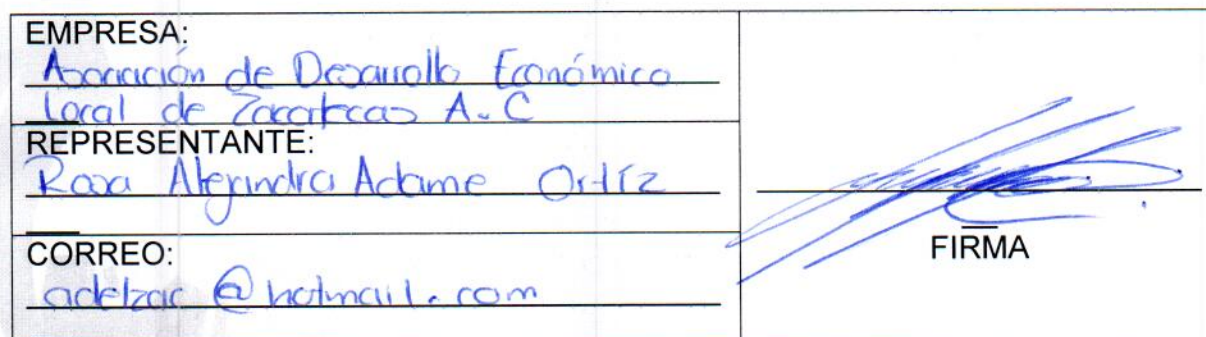 EMPRESA:
Asociación de Desarrollo Económico
Local de Zacatecas A.C
REPRESENTANTE:
Rosa Alejandra Adame Ortíz
CORREO:
adelzac@hotmail.com
FIRMA